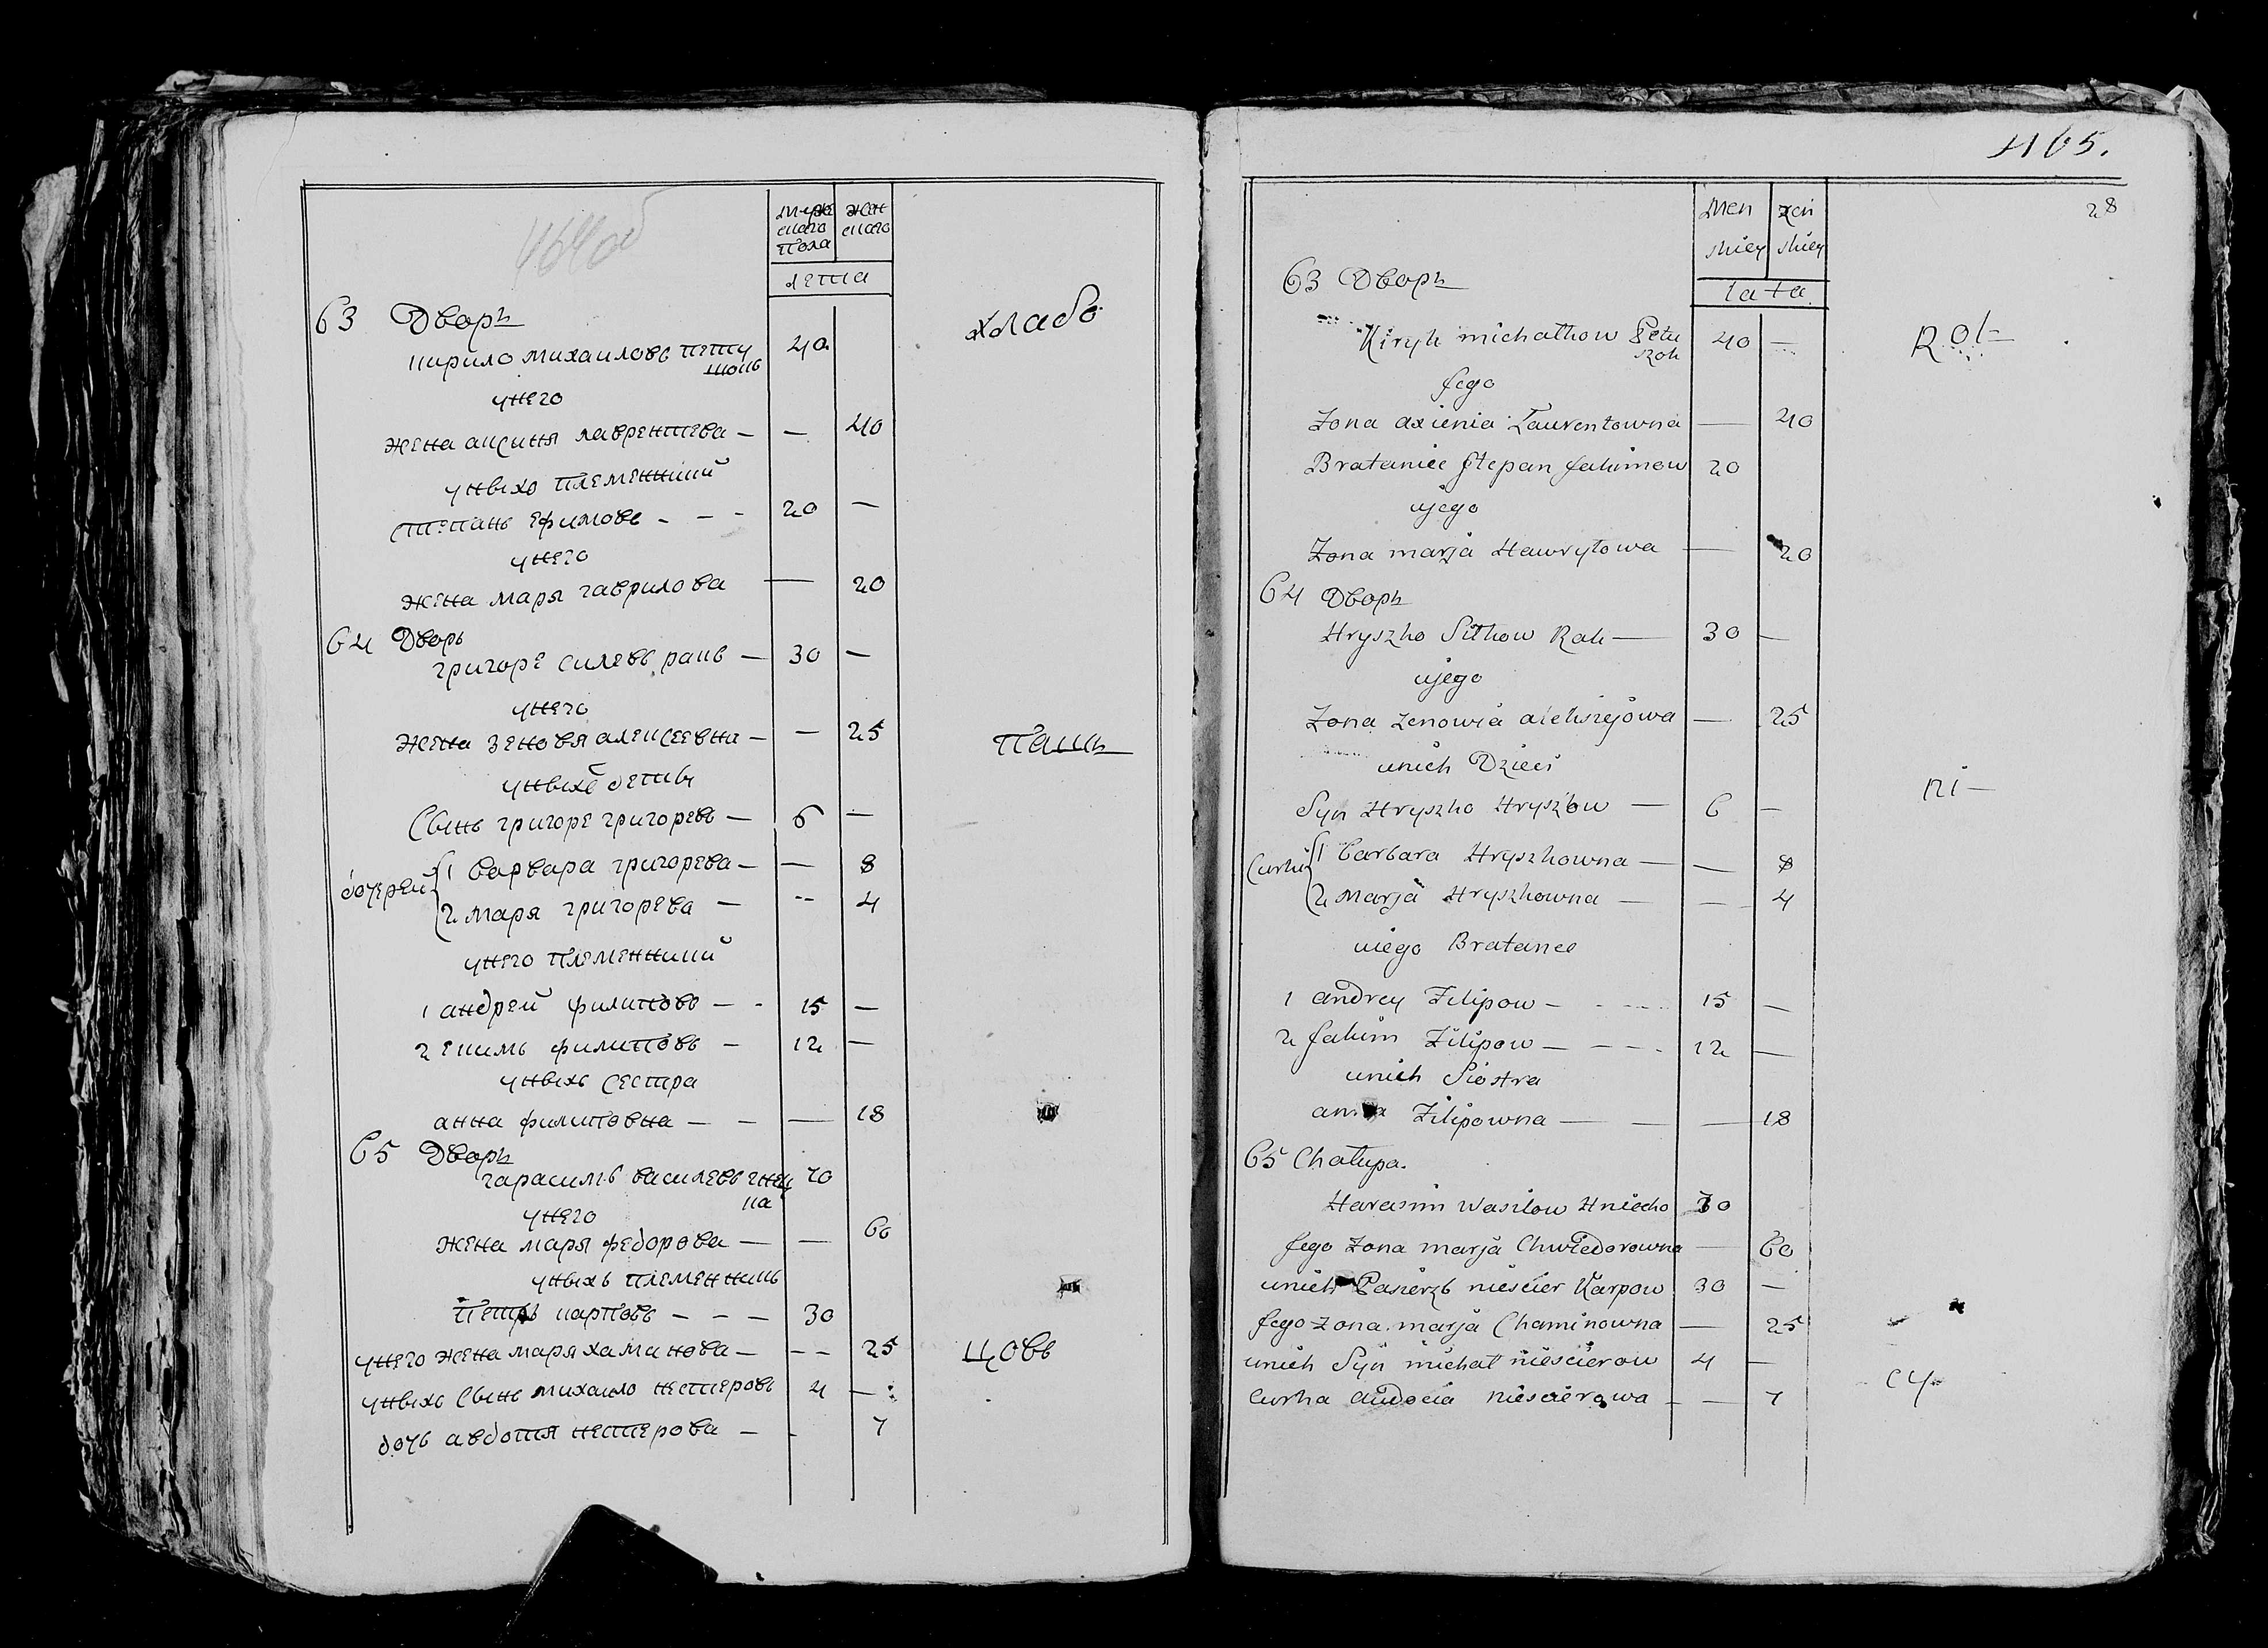 464 об
муже
скаго
пола
жен
скаго
лета
63 Дворъ
кирило михаиловъ пету
шокъ
40
хлабо
унего
жена аксиня лаврентева — — 40
унвихо племенники
степанъ ефимовъ - - - 20 —
унего
жена маря гаврилова — 20
64 Дворъ
григоре силевъ ракъ — 30 —
унего
жена зеновя алексеевна — — 25
пашъ
унвихъ дети
Свинъ григоре григоревъ — 6 —
дочерей
1 варвара григорева — — 8
2 маря григорева — -- 4
унего племенники
1 андрей филиповъ — - 15 —
2 екимъ филиповъ — 12 —
унвихъ сестра
анна филиповна — — — 18
65 Дворъ
гарасимъ василевъ гне
ка
70
унего
жена маря федорова — — 60
унвихъ племенникъ
петръ карповъ - - — 30
унего жена маря хаминова — -- 25
цовъ
унвихъ Свинъ михаило нестеровъ 4 —
дочъ авдотя нестерова — - 7
465.
28
Men
skiey
żen
skiey
lata
63 Дворъ
Kiryk michałkow Petu
szok
40 —
Rol-
jego
Żona axienia Laurentowna — 40
Brataniec Stepan Jakimow 20
ujego
Żona marja Hawryłowa — 20
64 Дворъ
Hryszko Siłkow Rak — 30 —
ujego
Żona zenowia alekszejowa — 25
unich Dzieci
ni-
Syn Hryszko Hryszkow — 6 —
Curki
1 barbara Hryszkowna — — 8
2 Marja Hryszkowna — — 4
uiego Bratance
1 andrey Filipow — - - - - 15 —
2 Jakim Filipow — - - - 12 —
unich Siostra
anna Filipowna — — — 18
65 Chałupa.
Harasim Wasilow Hniecko 70
Jego żona marja Chwiedorowna — 60
unich Pasierzb nieścier Karpow 30 —
Jego żona marja Chaminowna — 25
unich Syn michał nieścierow 4 —
cy-
Curka audocia nieścierowa - — 7